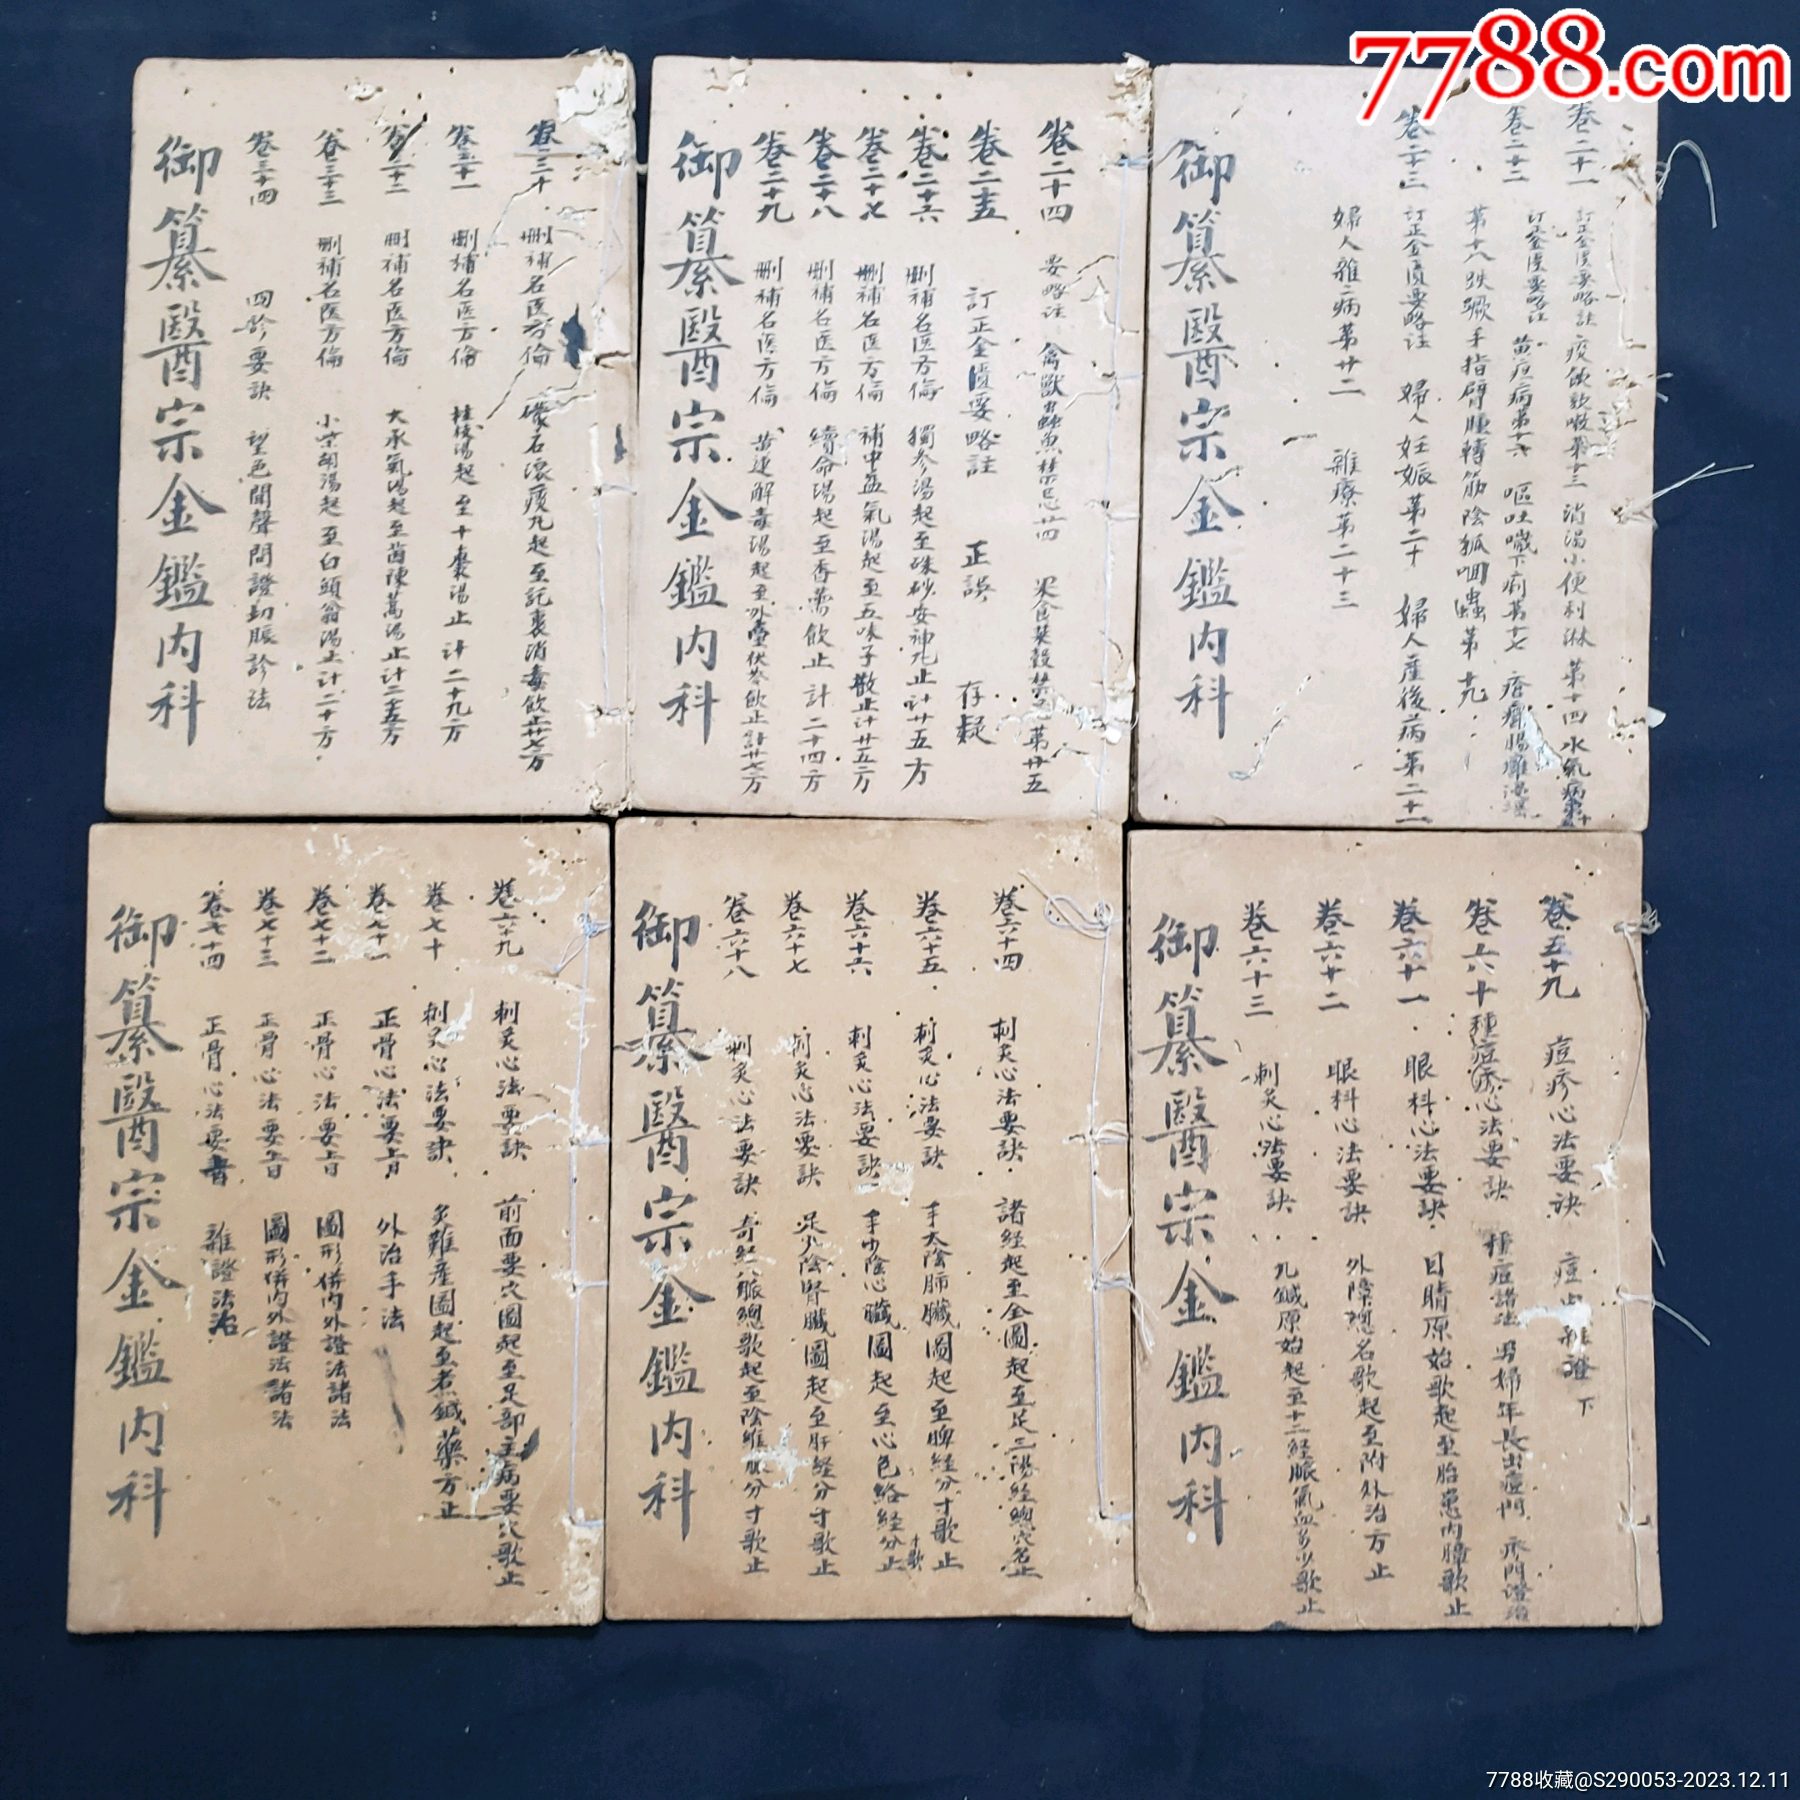 7788.com
卷二十一 訂正金匱要略註 痰飲欬嗽第十三 消渴小便利淋第十四 水氣病第十
卷二十二 訂正金匱要略註 黄疸病第十六 嘔吐噦下痢第十七 瘡癰腸癰浸淫
第十八 趺蹶手指臂腫轉筋陰狐疝蟲第十九
卷二十三 訂正金匱要略註 婦人妊娠第二十 婦人產後病第二十一
婦人雜病第廿二 雜療第二十三
御纂醫宗金鑑内科
卷二十四 要略註 禽獸蟲魚禁忌廿四 果食菜穀禁忌第廿五
卷二十五 訂正金匱要略註 正誤 存疑
卷二十六 刪補名医方倫 獨參湯起至硃砂安神丸止計廿五方
卷二十七 刪補名医方倫 補中益氣湯起至五味子散止計廿五方
卷二十八 刪補名医方倫 續命湯起至香薷飲止計二十四方
卷二十九 刪補名医方倫 黄連解毒湯起至外臺茯苓飲止計廿七方
御纂醫宗金鑑内科
卷三十 刪補名医方倫 礞石滾痰丸起至託裏消毒飲止廿七方
卷三十一 刪補名医方倫 桂枝湯起至十棗湯止計二十九方
卷三十二 刪補名医方倫 大承氣湯起至茵陳蒿湯止計二十五方
卷三十三 刪補名医方倫 小柴胡湯起至白頭翁湯止計二十方
卷三十四 四診要訣 望色聞聲問證切脈診法
御纂醫宗金鑑内科
卷五十九 痘疹心法要訣 痘出雜證下
卷六十 種痘疹心法要訣 種痘諸法 男婦年長出痘門 疹門證治
卷六十一 眼科心法要訣 目睛原始歌起至胎患内障歌止
卷六十二 眼科心法要訣 外障總名歌起至附外治方止
卷六十三 刺灸心法要訣 九鍼原始起至十二経脈氣血多少歌止
御纂醫宗金鑑内科
卷六十四 刺灸心法要訣 諸経起至全圖起至足三陽経總穴名止
卷六十五 刺灸心法要訣 手太陰肺臟圖起至脾経分寸歌止
卷六十六 刺灸心法要訣 手少陰心臟圖起至心包絡経分寸歌止
卷六十七 刺灸心法要訣 足少陰腎臟圖起至肝経分寸歌止
卷六十八 刺灸心法要訣 奇経八脈總歌起至陰維脈分寸歌止
御纂醫宗金鑑内科
卷六十九 刺灸心法要訣 前面要穴圖起至足部主病要穴歌止
卷七十 刺灸心法要訣 灸難產圖起至煮鍼藥方止
卷七十一 正骨心法要旨 外治手法
卷七十二 正骨心法要旨 圖形併内外證法諸法
卷七十三 正骨心法要旨 圖形併内外證法諸法
卷七十四 正骨心法要 雜證法治
御纂醫宗金鑑内科
7788收藏@S290053-2023.12.11